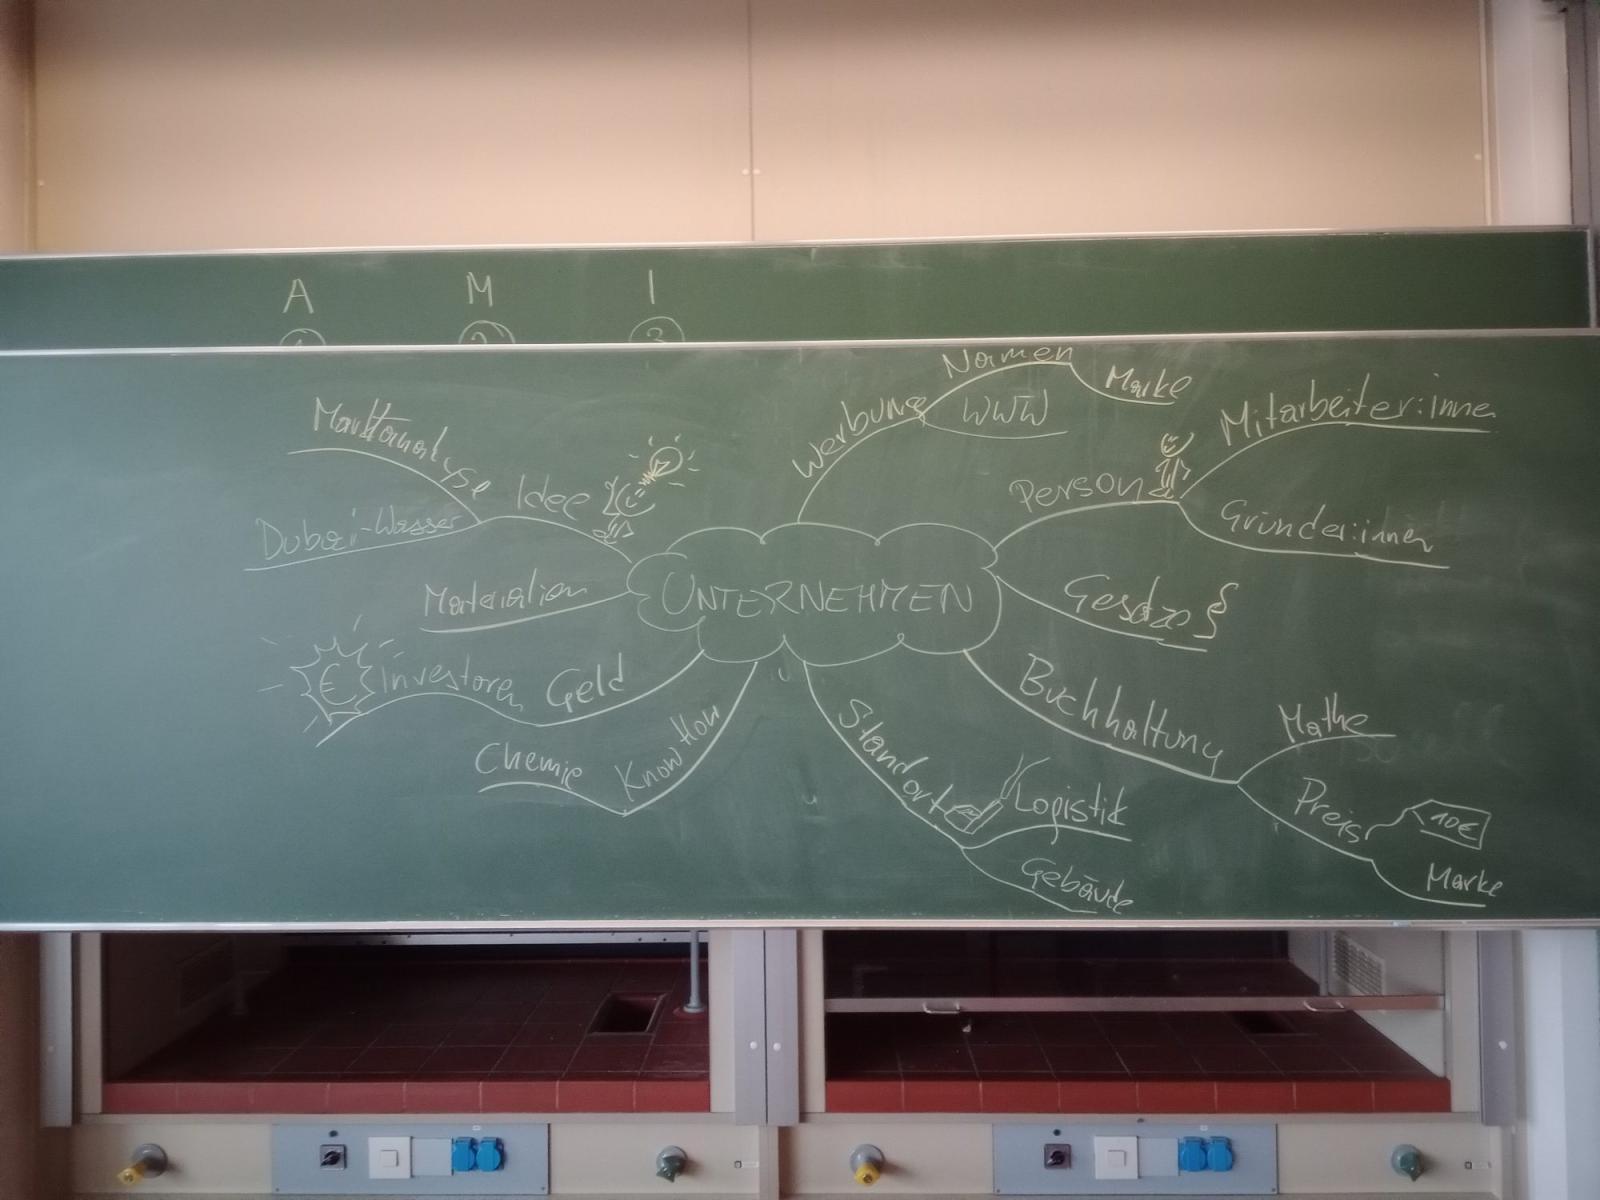 A M I
1 2 3
Normen
Marke
Werbung
WWW
Mitarbeiter:innen
Person
Gründer:innen
Marktanalyse
Idee
Dubai-Wasser
UNTERNEHMEN
Materialien
Gesetze §
€
Investoren
Geld
Buchhaltung
Mathe
Chemie
Know How
Standort
Logistik
Preis
10€
Gebäude
Marke